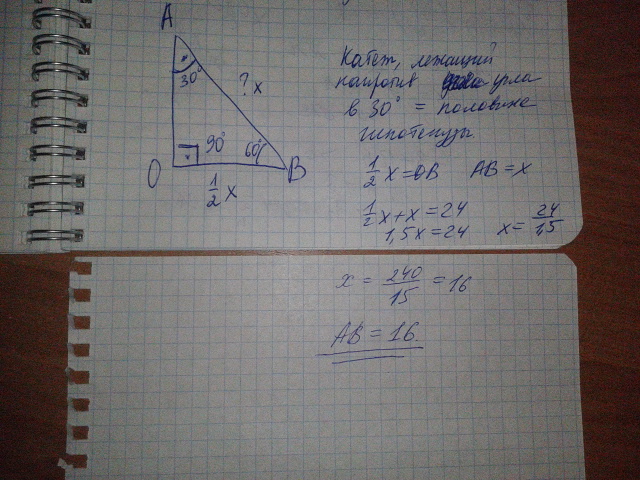 A
30°
? x
90°
60°
O
B
1/2 x
Катет, лежащий
напротив угла
в 30° = половине
гипотенузы.
1/2 x = OB AB = x
1/2 x + x = 24
1,5x = 24 x = 24/1,5
x = 240/15 = 16
AB = 16.